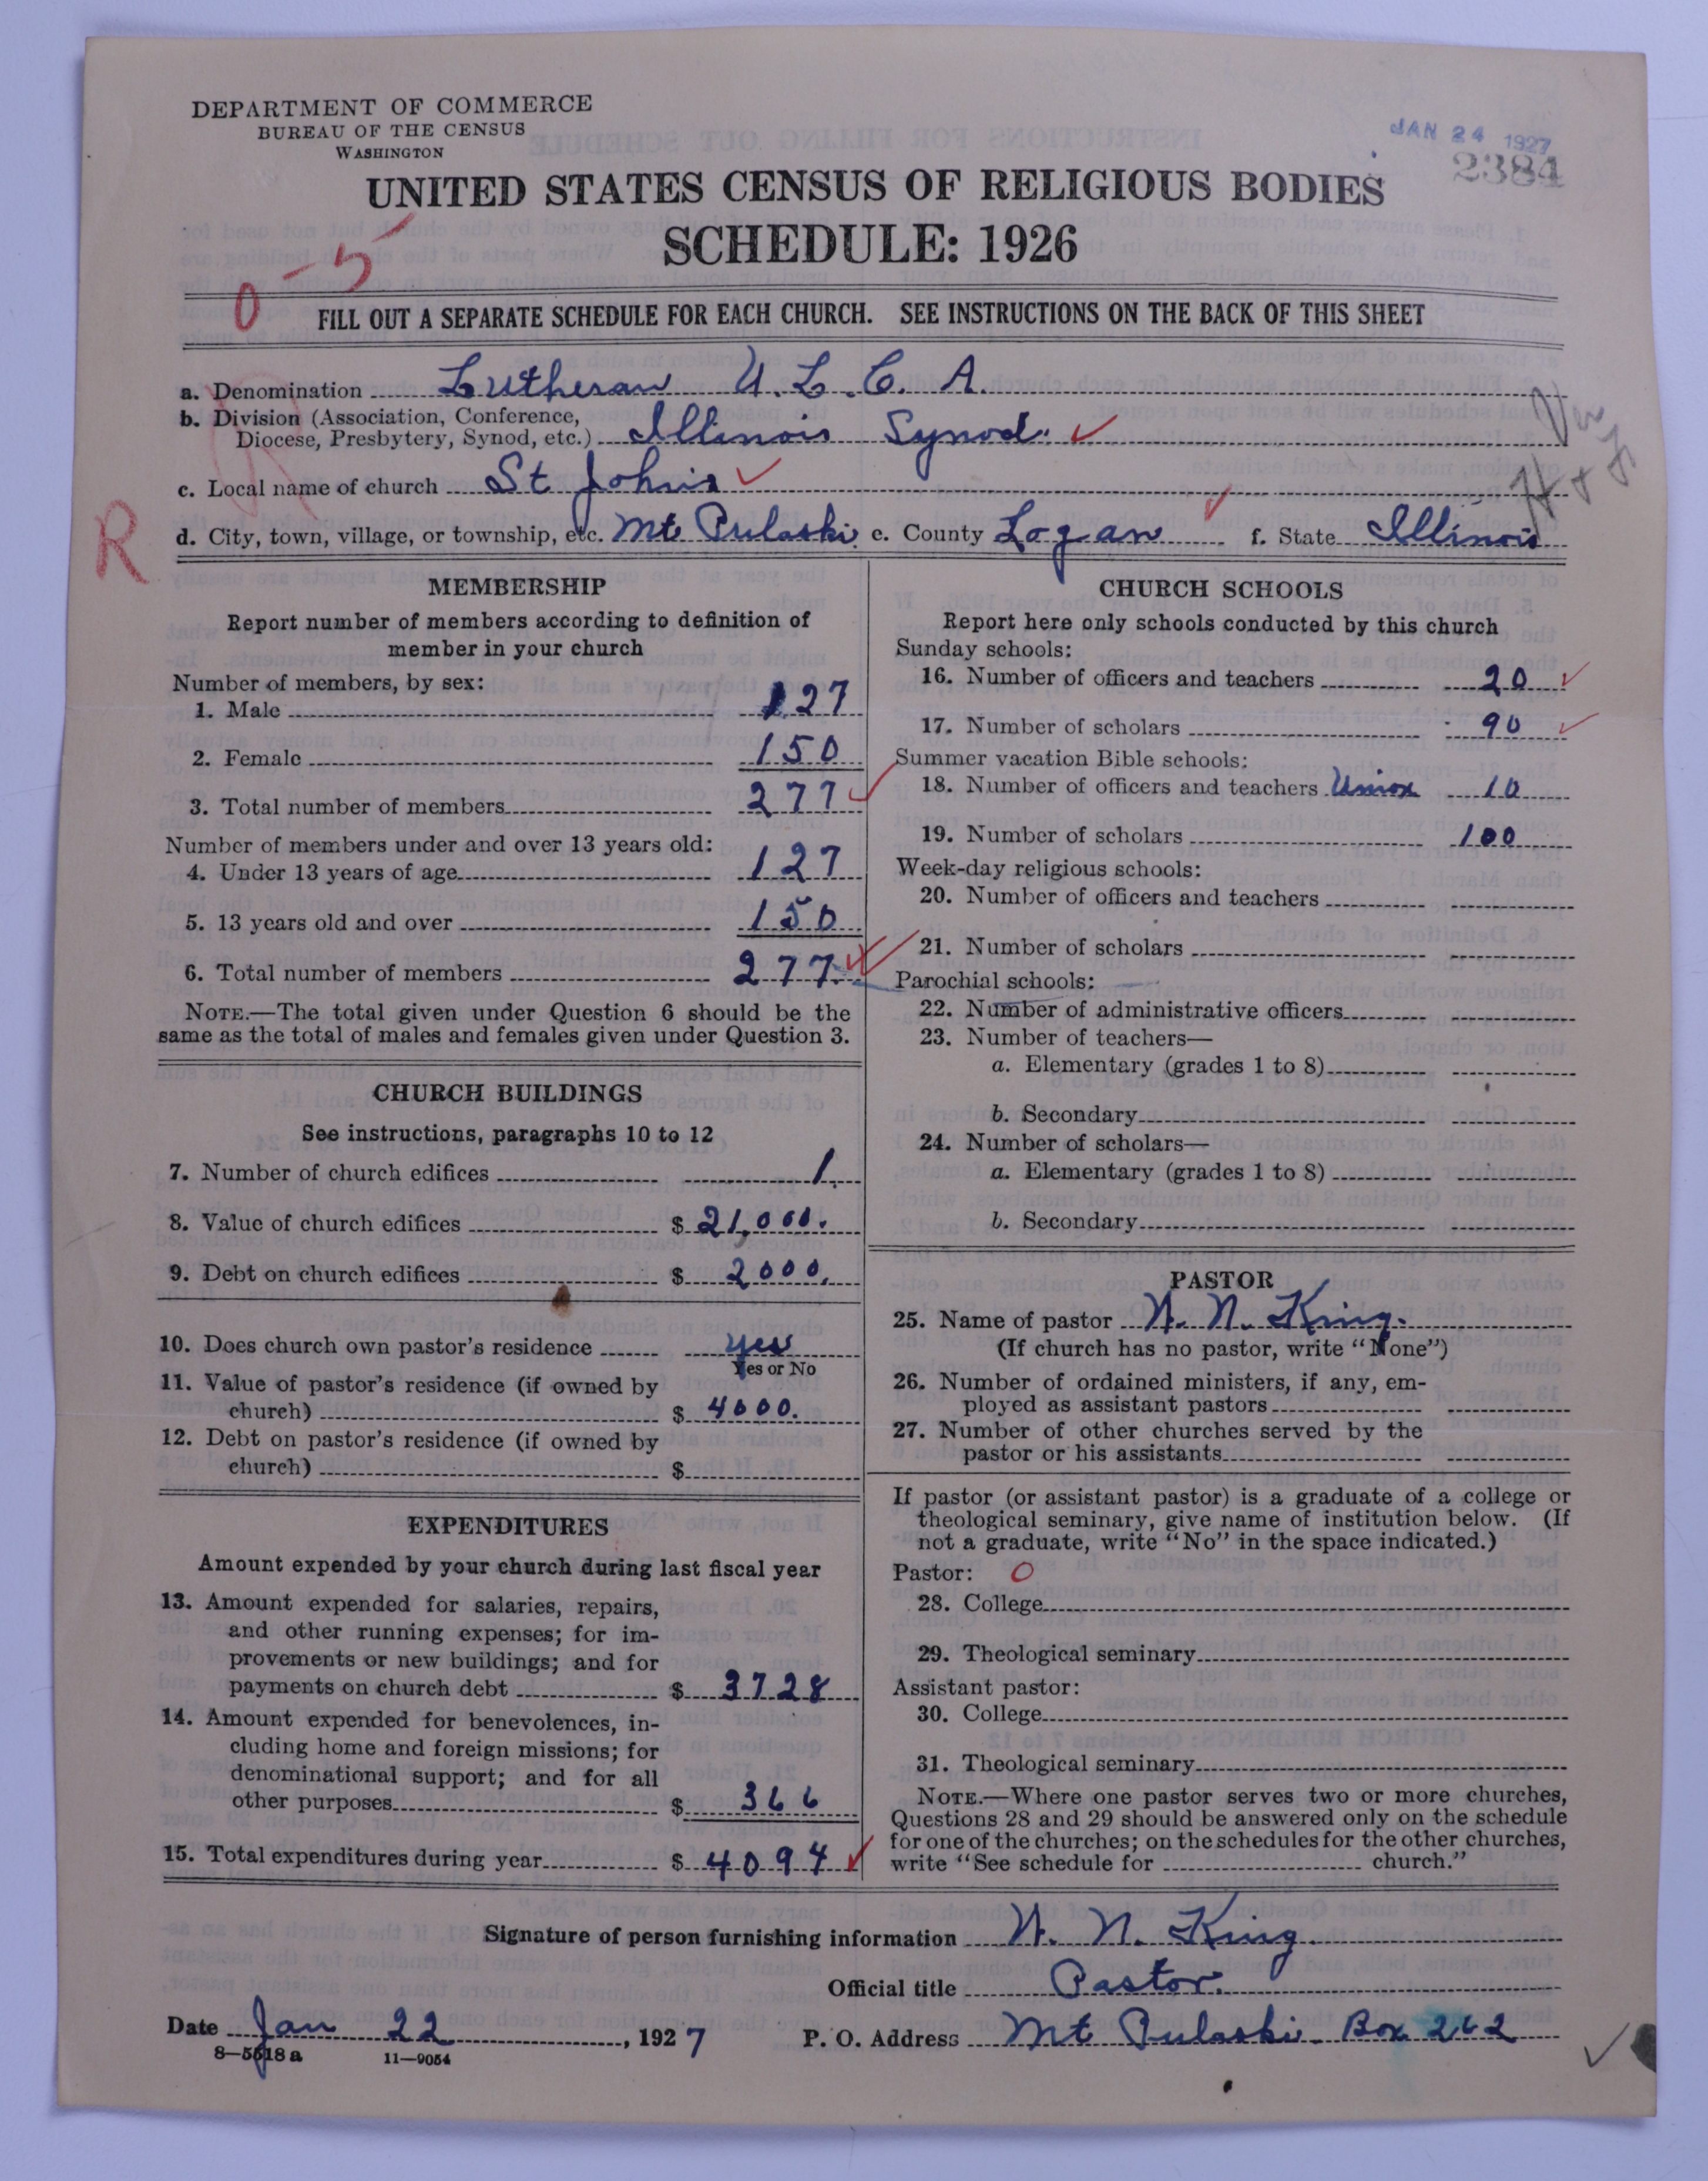 DEPARTMENT OF COMMERCE
BUREAU OF THE CENSUS
WASHINGTON
JAN 24 1927
2384
UNITED STATES CENSUS OF RELIGIOUS BODIES
SCHEDULE: 1926
0 -5
FILL OUT A SEPARATE SCHEDULE FOR EACH CHURCH. SEE INSTRUCTIONS ON THE BACK OF THIS SHEET
a. Denomination Lutheran U.L.C.A.
b. Division (Association, Conference,
Diocese, Presbytery, Synod, etc.) Illinois Synod.
c. Local name of church St Johns
R
d. City, town, village, or township, etc. Mt Pulaski e. County Logan f. State Illinois
MEMBERSHIP
Report number of members according to definition of
member in your church
Number of members, by sex:
1. Male 127
2. Female 150
3. Total number of members 277
Number of members under and over 13 years old:
4. Under 13 years of age 127
5. 13 years old and over 150
6. Total number of members 277
NOTE.—The total given under Question 6 should be the
same as the total of males and females given under Question 3.
CHURCH BUILDINGS
See instructions, paragraphs 10 to 12
7. Number of church edifices 1.
8. Value of church edifices $ 21,000.
9. Debt on church edifices $ 2000.
10. Does church own pastor's residence yes
Yes or No
11. Value of pastor's residence (if owned by
church) $ 4000.
12. Debt on pastor's residence (if owned by
church) $
EXPENDITURES
Amount expended by your church during last fiscal year
13. Amount expended for salaries, repairs,
and other running expenses; for im-
provements or new buildings; and for
payments on church debt $ 3728
14. Amount expended for benevolences, in-
cluding home and foreign missions; for
denominational support; and for all
other purposes $ 366
15. Total expenditures during year $ 4094
CHURCH SCHOOLS
Report here only schools conducted by this church
Sunday schools:
16. Number of officers and teachers 20
17. Number of scholars 90
Summer vacation Bible schools:
18. Number of officers and teachers Union 10
19. Number of scholars 100
Week-day religious schools:
20. Number of officers and teachers
21. Number of scholars
Parochial schools:
22. Number of administrative officers
23. Number of teachers—
a. Elementary (grades 1 to 8)
b. Secondary
24. Number of scholars—
a. Elementary (grades 1 to 8)
b. Secondary
PASTOR
25. Name of pastor N. N. King.
(If church has no pastor, write "None")
26. Number of ordained ministers, if any, em-
ployed as assistant pastors
27. Number of other churches served by the
pastor or his assistants
If pastor (or assistant pastor) is a graduate of a college or
theological seminary, give name of institution below. (If
not a graduate, write "No" in the space indicated.)
Pastor: 0
28. College
29. Theological seminary
Assistant pastor:
30. College
31. Theological seminary
NOTE.—Where one pastor serves two or more churches,
Questions 28 and 29 should be answered only on the schedule
for one of the churches; on the schedules for the other churches,
write "See schedule for church."
Signature of person furnishing information N. N. King.
Official title Pastor.
Date Jan 22, 1927 P. O. Address Mt Pulaski Box 262
8—5618 a 11—9054